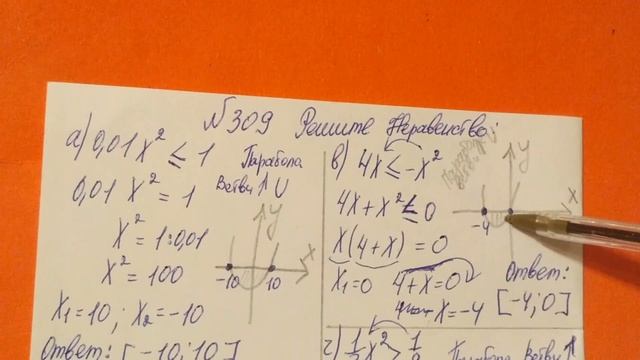 №309 Решите Неравенство:
а) 0,01x² ≤ 1
Парабола
Ветви ↑ U
0,01 x² = 1
x² = 1:0,01
x² = 100
x₁=10; x₂=-10
Ответ: [-10;10]
y
x
-10
10
в) 4x ≤ -x²
Парабола
ветви ↑ U
4x + x² ≤ 0
x(4+x) = 0
x₁=0 4+x=0
x=-4
y
x
-4
Ответ:
[-4;0]
Парабола Ветви ↑